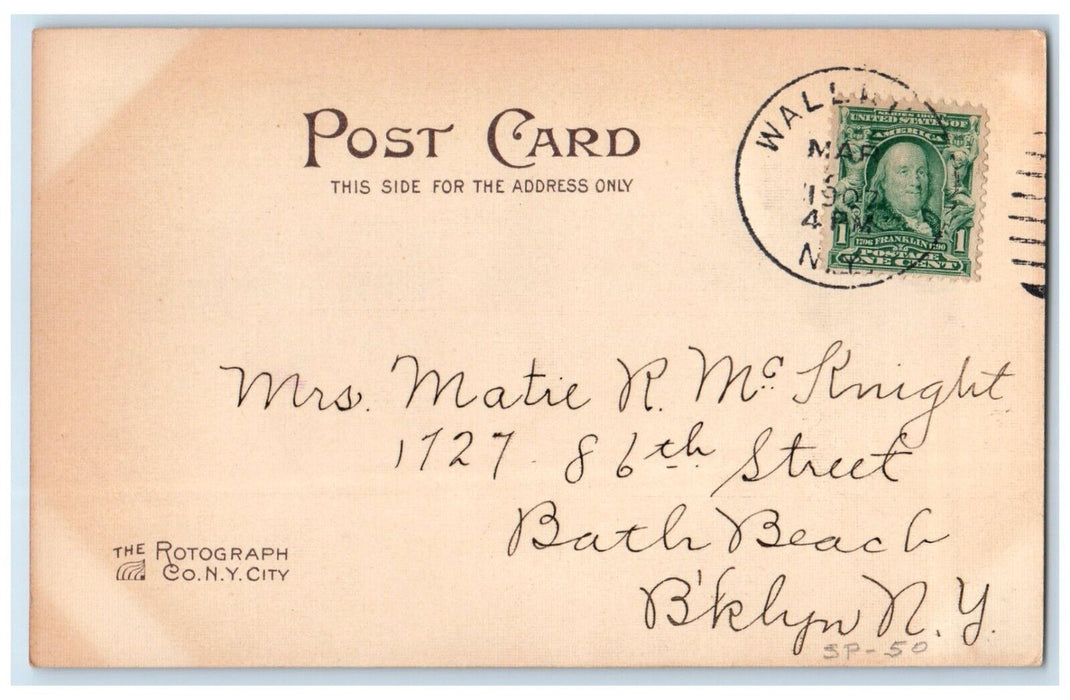 POST CARD
THIS SIDE FOR THE ADDRESS ONLY
MAR
1907
4 PM
N.Y.
SERIES 1902
UNITED STATES OF
AMERICA
1 1706 FRANKLIN 1790 1
POSTAGE
ONE CENT
Mrs. Matie R. Mc Knight
1727 86th Street
Bath Beach
B'klyn N.Y.
THE ROTOGRAPH
CO. N.Y. CITY
SP-50